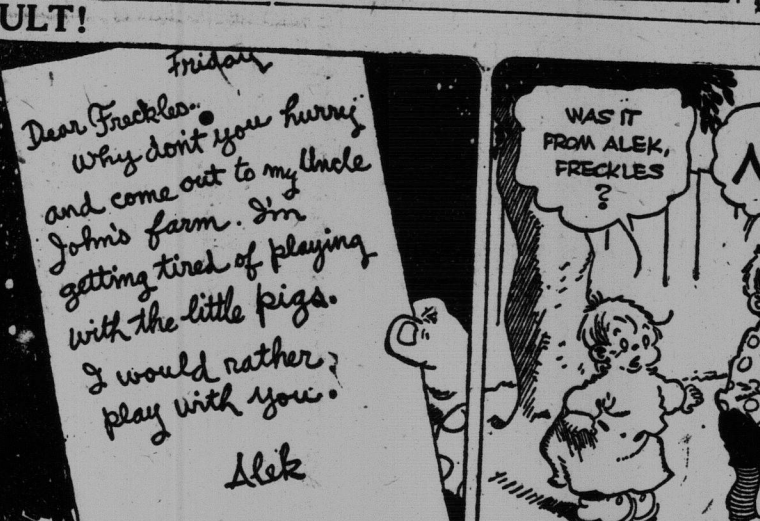 ULT!
Friday
Dear Freckles..
Why don't you hurry
and come out to my Uncle
John's farm. I'm
getting tired of playing
with the little pigs.
I would rather
play with you.
Alek
WAS IT
FROM ALEK,
FRECKLES
?